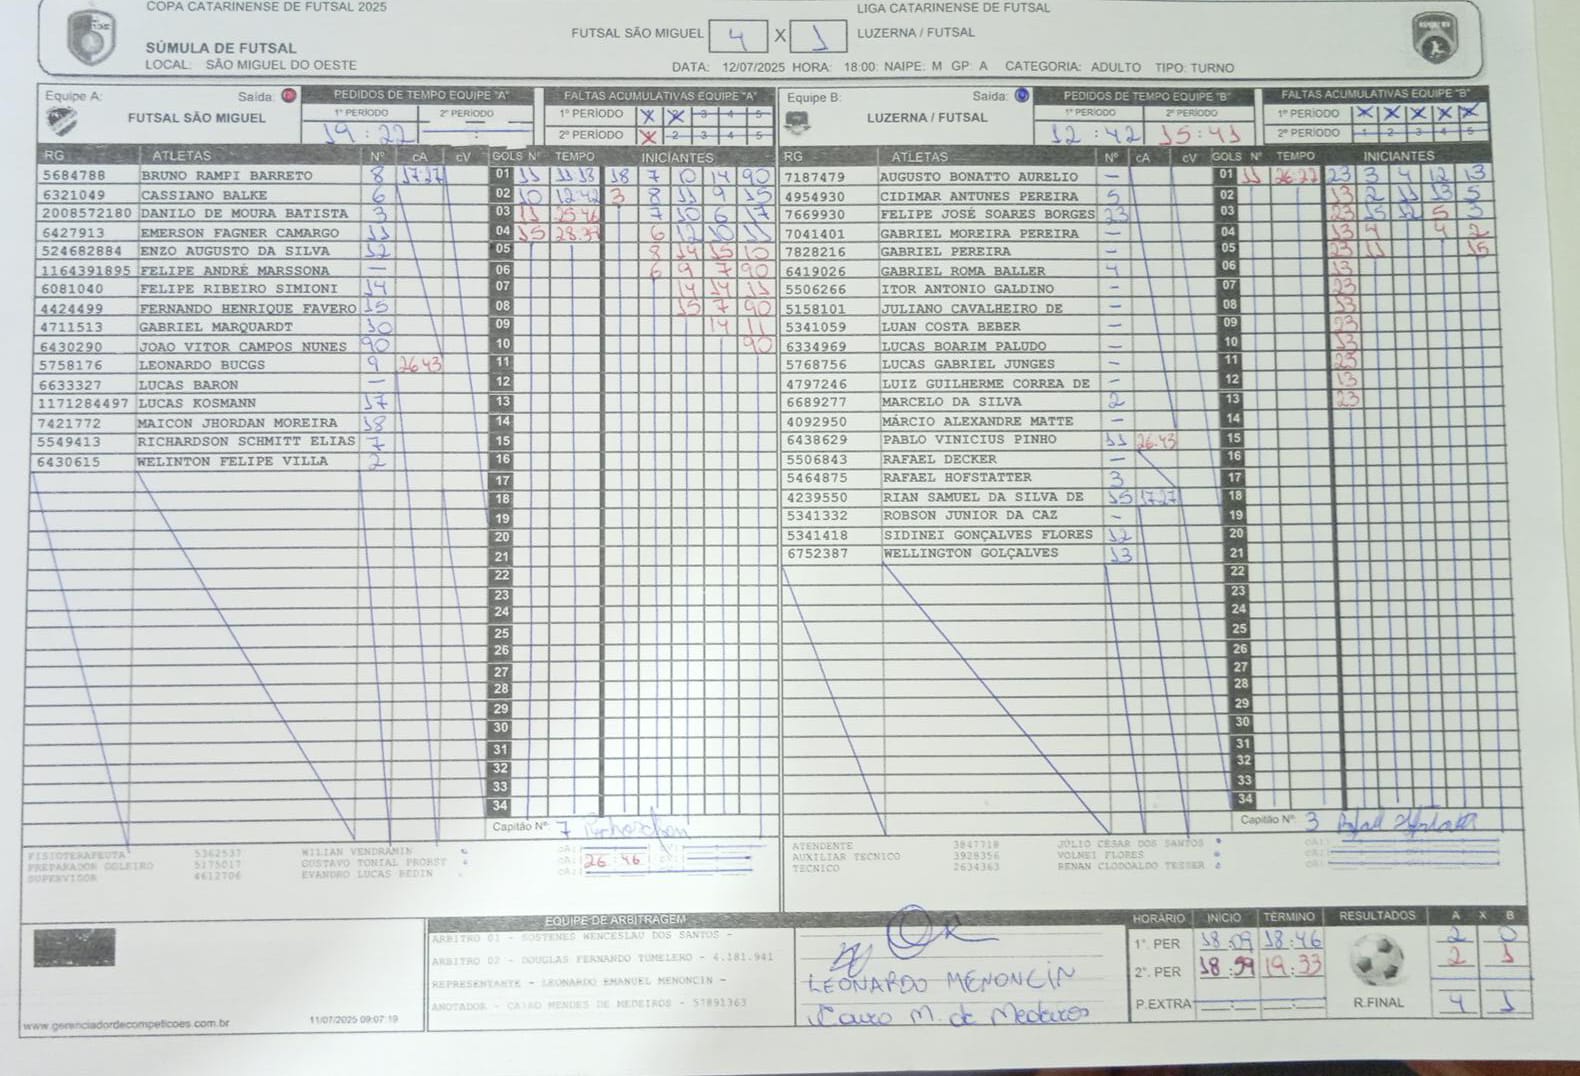 COPA CATARINENSE DE FUTSAL 2025
LIGA CATARINENSE DE FUTSAL
SÚMULA DE FUTSAL
LOCAL: SÃO MIGUEL DO OESTE
FUTSAL SÃO MIGUEL 4 X 1 LUZERNA / FUTSAL
DATA: 12/07/2025 HORA: 18:00: NAIPE: M GP: A CATEGORIA: ADULTO TIPO: TURNO
Equipe A: Saída:
FUTSAL SÃO MIGUEL
PEDIDOS DE TEMPO EQUIPE "A"
1º PERÍODO 2º PERÍODO
19:22 :
FALTAS ACUMULATIVAS EQUIPE "A"
1º PERÍODO X X 3 4 5
2º PERÍODO X 2 3 4 5
RG ATLETAS Nº cA cV GOLS Nº TEMPO INICIANTES
5684788 BRUNO RAMPI BARRETO 8 17:27 01 11 11 13 18 7 10 14 90
6321049 CASSIANO BALKE 6 02 10 12:42 3 8 11 9 15
2008572180 DANILO DE MOURA BATISTA 3 03 11 25:46 7 10 6 17
6427913 EMERSON FAGNER CAMARGO 11 04 15 28:39 6 12 10 11
524682884 ENZO AUGUSTO DA SILVA 12 05 8 14 15 10
1164391895 FELIPE ANDRÉ MARSSONA — 06 6 9 7 90
6081040 FELIPE RIBEIRO SIMIONI 14 07 14 14 11
4424499 FERNANDO HENRIQUE FAVERO 15 08 15 7 90
4711513 GABRIEL MARQUARDT 10 09 14 11
6430290 JOAO VITOR CAMPOS NUNES 90 10 90
5758176 LEONARDO BUCGS 9 26:43 11
6633327 LUCAS BARON — 12
1171284497 LUCAS KOSMANN 17 13
7421772 MAICON JHORDAN MOREIRA 18 14
5549413 RICHARDSON SCHMITT ELIAS 7 15
6430615 WELINTON FELIPE VILLA 2 16
17
18
19
20
21
22
23
24
25
26
27
28
29
30
31
32
33
34
Capitão Nº: 7
FISIOTERAPEUTA 5362537 WILIAN VENDRAMIN
PREPARADOR GOLEIRO 5175017 GUSTAVO TONIAL PROBST 26:46
SUPERVISOR 4612706 EVANDRO LUCAS BEDIN
Equipe B: Saída:
LUZERNA / FUTSAL
PEDIDOS DE TEMPO EQUIPE "B"
1º PERÍODO 2º PERÍODO
12:42 15:41
FALTAS ACUMULATIVAS EQUIPE "B"
1º PERÍODO X X X X X
2º PERÍODO 1 2 3 4 5
RG ATLETAS Nº cA cV GOLS Nº TEMPO INICIANTES
7187479 AUGUSTO BONATTO AURELIO — 01 11 26:22 23 3 4 12 13
4954930 CIDIMAR ANTUNES PEREIRA 5 02 13 2 11 13 5
7669930 FELIPE JOSÉ SOARES BORGES 23 03 23 15 12 5 3
7041401 GABRIEL MOREIRA PEREIRA — 04 13 4 4 2
7828216 GABRIEL PEREIRA — 05 23 11 15
6419026 GABRIEL ROMA BALLER 4 06 13
5506266 ITOR ANTONIO GALDINO — 07 23
5158101 JULIANO CAVALHEIRO DE — 08 13
5341059 LUAN COSTA BEBER — 09 23
6334969 LUCAS BOARIM PALUDO — 10 13
5768756 LUCAS GABRIEL JUNGES — 11 23
4797246 LUIZ GUILHERME CORREA DE — 12 13
6689277 MARCELO DA SILVA 2 13 23
4092950 MÁRCIO ALEXANDRE MATTE — 14
6438629 PABLO VINICIUS PINHO 11 26:43 15
5506843 RAFAEL DECKER — 16
5464875 RAFAEL HOFSTATTER 3 17
4239550 RIAN SAMUEL DA SILVA DE 15 17:27 18
5341332 ROBSON JUNIOR DA CAZ — 19
5341418 SIDINEI GONÇALVES FLORES 12 20
6752387 WELLINGTON GOLÇALVES 13 21
22
23
24
25
26
27
28
29
30
31
32
33
34
Capitão Nº: 3
ATENDENTE 3847718 JULIO CESAR DOS SANTOS
AUXILIAR TECNICO 3928356 VOLNEI FLORES
TECNICO 2634363 RENAN CLODOALDO TESSER
EQUIPE DE ARBITRAGEM
ARBITRO 01 - SOSTENES WENCESLAU DOS SANTOS -
ARBITRO 02 - DOUGLAS FERNANDO TUMELERO - 4.181.941
REPRESENTANTE - LEONARDO EMANUEL MENONCIN -
ANOTADOR - CAIRO MENDES DE MEDEIROS - 57891363
LEONARDO MENONCIN
Cairo M. de Medeiros
HORÁRIO INÍCIO TÉRMINO RESULTADOS A X B
1º. PER 18:09 18:46 2 0
2º. PER 18:59 19:33 2 1
P.EXTRA : : R.FINAL 4 1
www.gerenciadordecompeticoes.com.br 11/07/2025 09:07:19